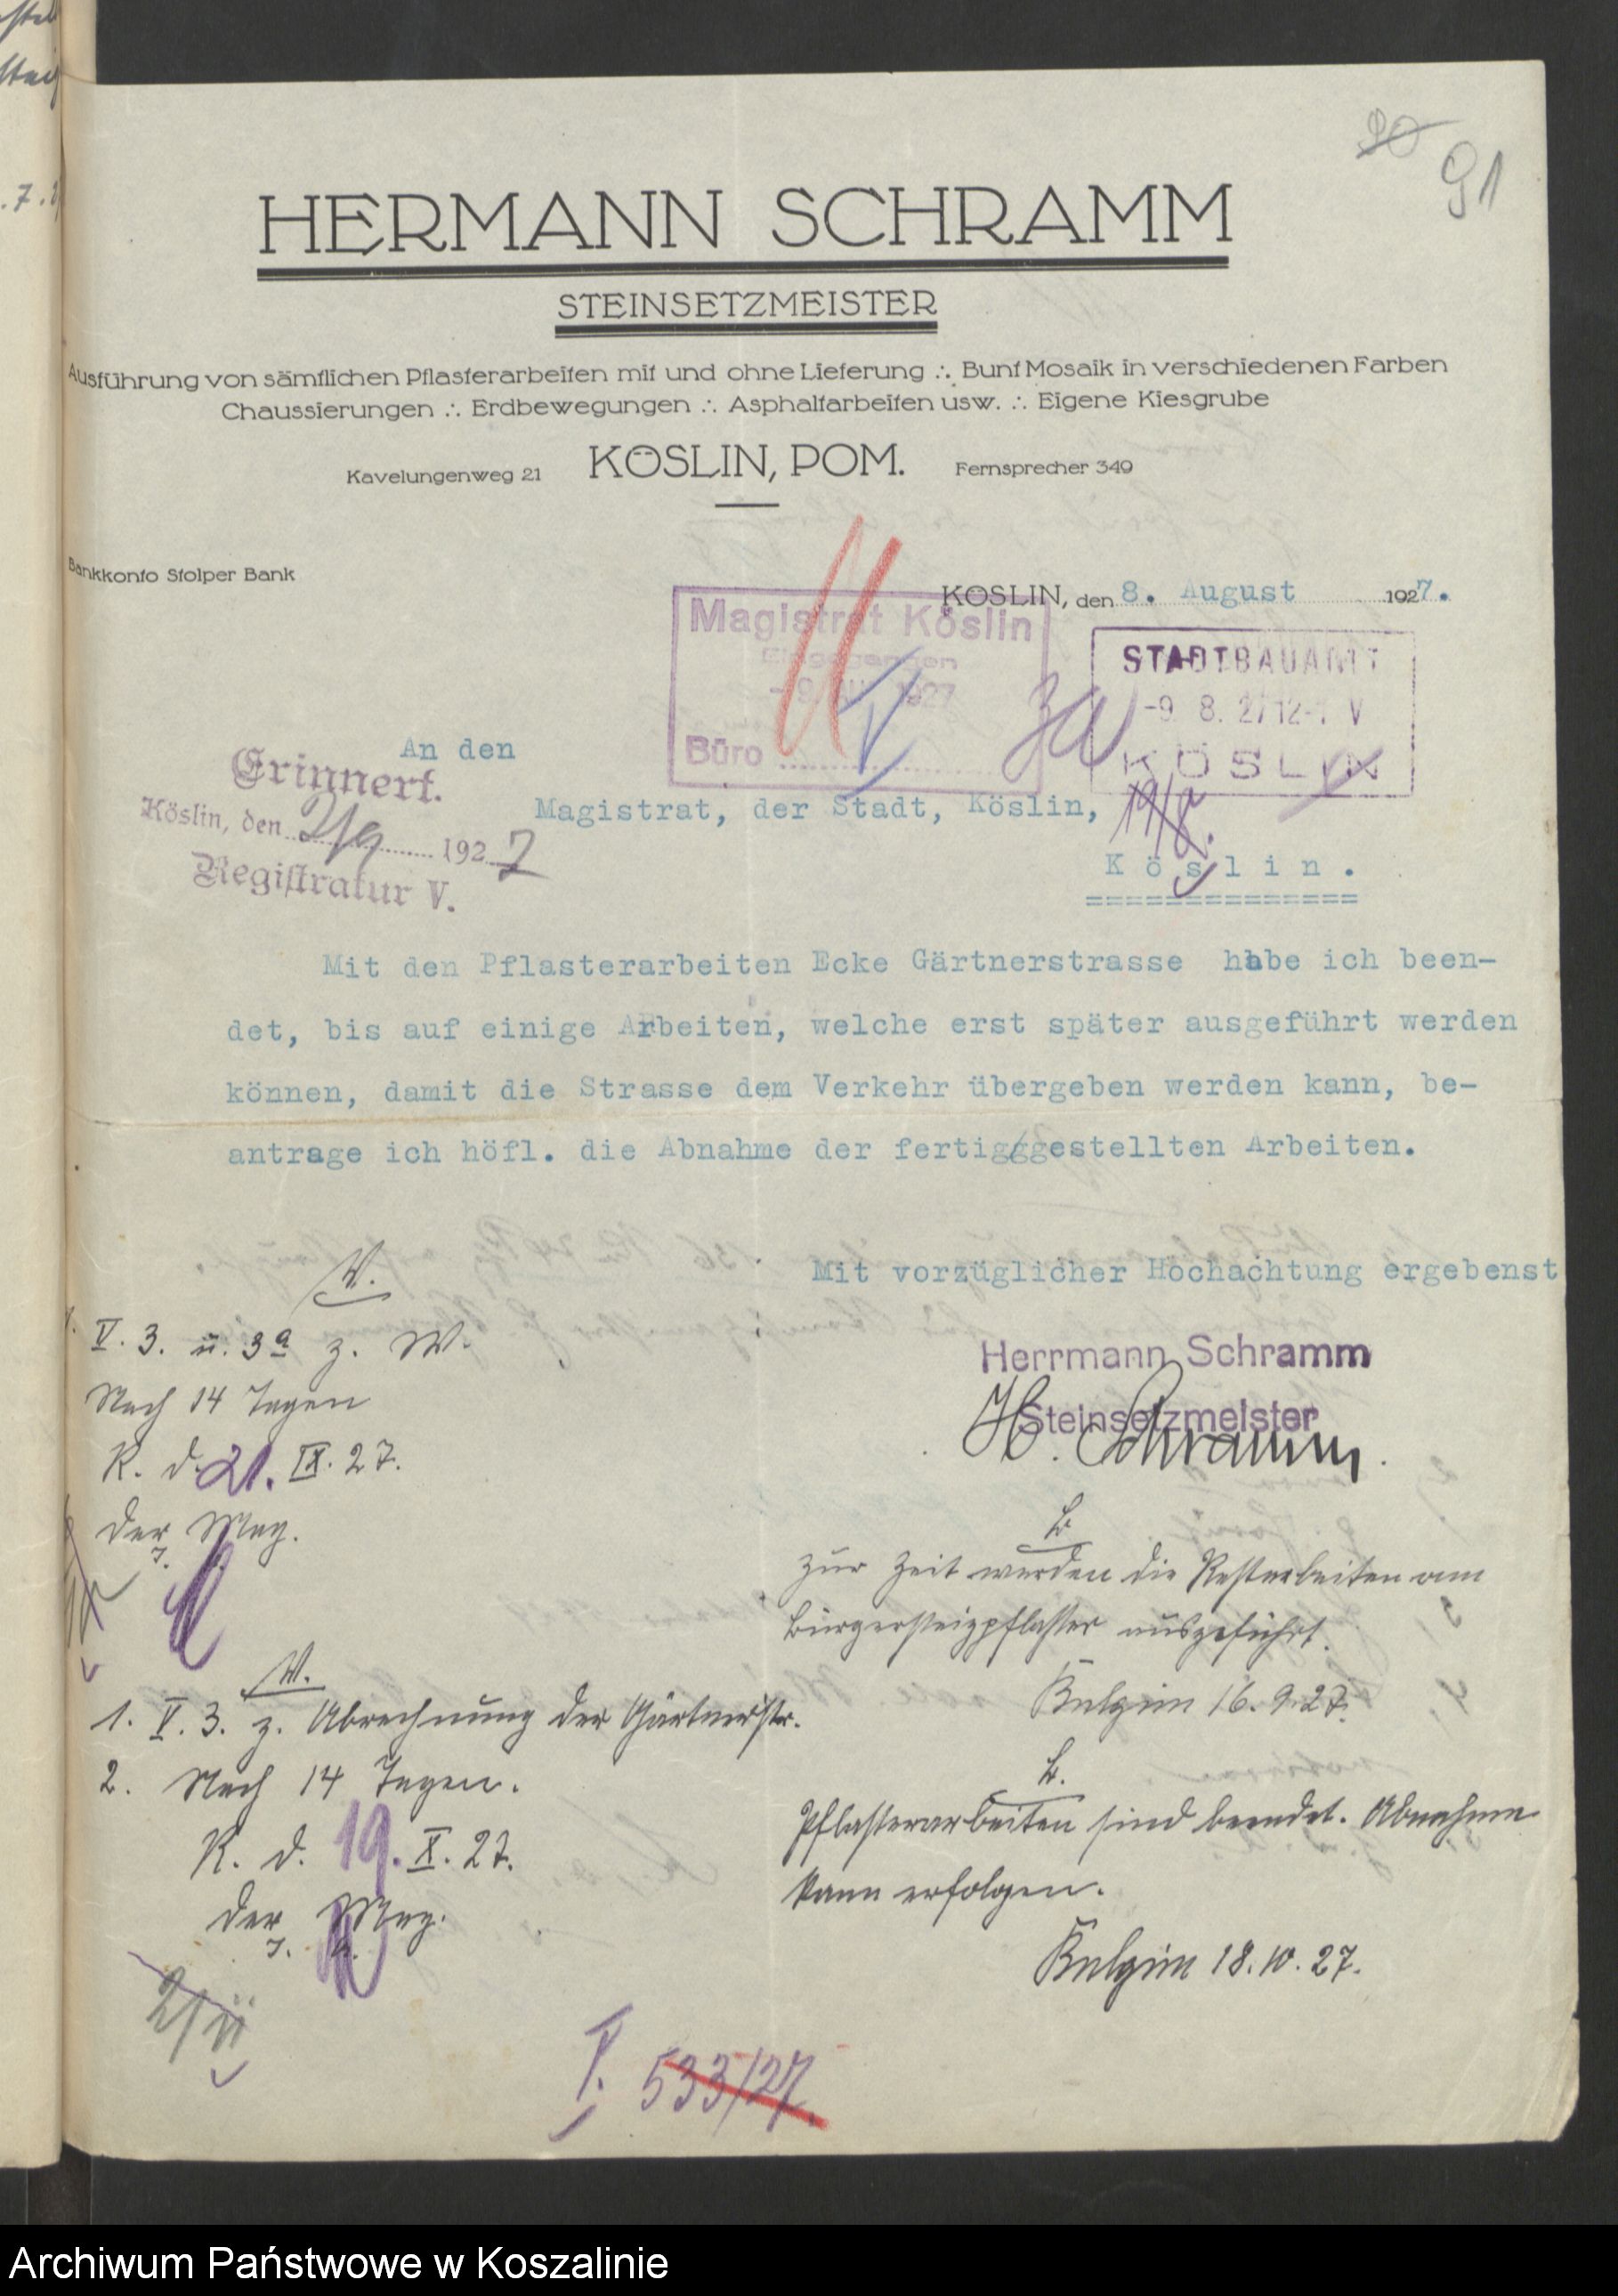 90
91
HERMANN SCHRAMM
STEINSETZMEISTER
Ausführung von sämtlichen Pflasterarbeiten mit und ohne Lieferung ∴ Bunt Mosaik in verschiedenen Farben
Chaussierungen ∴ Erdbewegungen ∴ Asphaltarbeiten usw. ∴ Eigene Kiesgrube
Kavelungenweg 21 KÖSLIN, POM. Fernsprecher 349
Bankkonto Stolper Bank
KÖSLIN, den 8. August 1927.
Magistrat Köslin
Eingegangen
-9. 1927
Büro
V
3a
STADTBAUAMT
-9. 8. 27 12-1 V
KÖSLIN
An den
Erinnert.
Köslin, den 21/9 1927
Registratur V.
Magistrat, der Stadt, Köslin,
Köslin.
==============
Mit den Pflasterarbeiten Ecke Gärtnerstrasse habe ich been-
det, bis auf einige Arbeiten, welche erst später ausgeführt werden
können, damit die Strasse dem Verkehr übergeben werden kann, be-
antrage ich höfl. die Abnahme der fertigggestellten Arbeiten.
Mit vorzüglicher Hochachtung ergebenst
Herrmann Schramm
Steinsetzmeister
H. Schramm.
W.
V. 3. u. 3a z. W.
Nach 14 Tagen
K. d. 21. IX. 27.
Der Mag.
J.
B
Zur Zeit werden die Restarbeiten am
Bürgersteigpflaster ausgeführt.
16.9.27.
W.
1. V. 3. z. Abrechnung der Gärtnerstr.
2. Nach 14 Tagen.
K. d. 19. X. 27.
Der Mag.
J.
B.
Pflasterarbeiten sind beendet. Abnahme
kann erfolgen.
18.10.27.
2/11
V. 533/27.
Archiwum Państwowe w Koszalinie